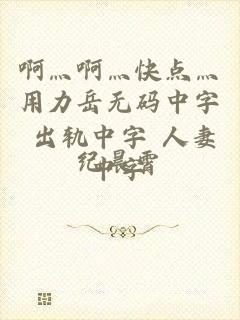 啊灬啊灬快点灬
用力岳无码中字
出轨中字 人妻
中字
纪晨霄